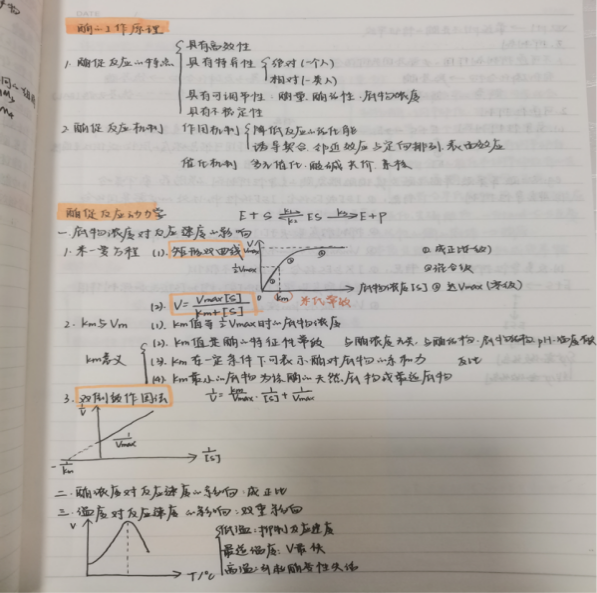 酶的工作原理
1. 酶促反应的特点 具有高效性
具有特异性 绝对(一个)
相对(一类)
具有可调节性. 酶量. 酶活性. 底物浓度
具有不稳定性
2. 酶促反应机制 作用机制 降低反应的活化能
诱导契合. 邻近效应与定向排列. 表面效应
催化机制 多元催化. 酸碱. 共价. 亲核
酶促反应动力学 E + S ES E+P
一. 底物浓度对反应速度的影响
1. 米-曼方程 (1). 矩形双曲线 V Vmax ½Vmax 0 Km 底物浓度[S]
① 成正比(一级)
② 混合级
③ 达Vmax(零级)
(2). V = Vmax[S] / Km+[S] 米氏常数
2. Km与Vm (1). Km值等于½Vmax时的底物浓度
Km意义 (2). Km值是酶的特征性常数 与酶浓度无关, 与酶结构. 底物结构. pH. 温度有关
(3). Km在一定条件下可表示酶对底物的亲和力 反比
(4). Km最小的底物为该酶的天然底物或最适底物
3. 双倒数作图法 1/V = Km/Vmax · 1/[S] + 1/Vmax
1/V 1/Vmax -1/Km 1/[S]
二. 酶浓度对反应速度的影响: 成正比
三. 温度对反应速度的影响: 双重影响
V T/℃
低温: 抑制反应速度
最适温度: V最快
高温: 引起酶变性失活